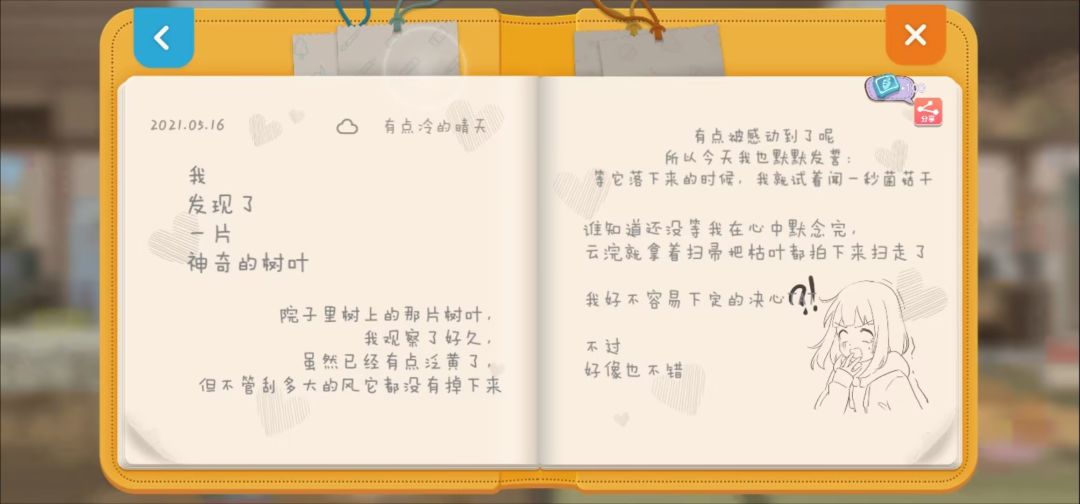 2021.05.16
有点冷的晴天
我
发现了
一片
神奇的树叶
院子里树上的那片树叶，
我观察了好久，
虽然已经有点泛黄了，
但不管刮多大的风它都没有掉下来
分享
有点被感动到了呢
所以今天我也默默发誓：
等它落下来的时候，我就试着闻一秒菌菇干
谁知道还没等我在心中默念完，
云浣就拿着扫帚把枯叶都拍下来扫走了
我好不容易下定的决心
?!
不过
好像也不错